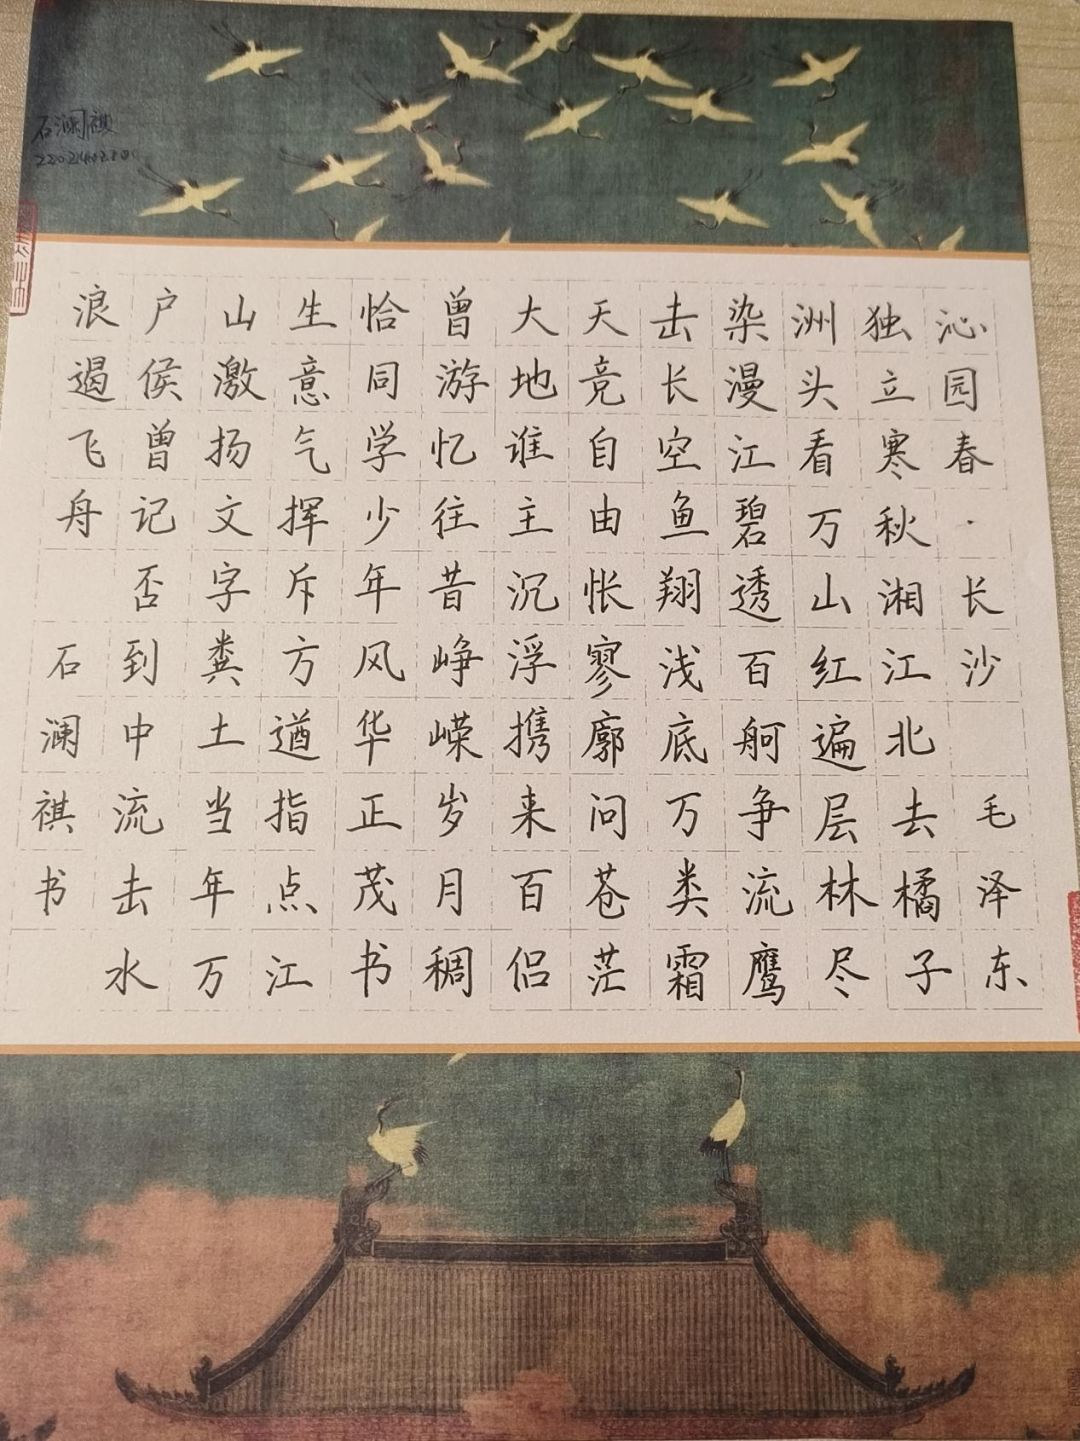 石澜祺
沁园春·长沙 毛泽东
独立寒秋湘江北去橘子
洲头看万山红遍层林尽
染漫江碧透百舸争流鹰
击长空鱼翔浅底万类霜
天竞自由怅寥廓问苍茫
大地谁主沉浮携来百侣
曾游忆往昔峥嵘岁月稠
恰同学少年风华正茂书
生意气挥斥方遒指点江
山激扬文字粪土当年万
户侯曾记否到中流击水
浪遏飞舟 石澜祺书